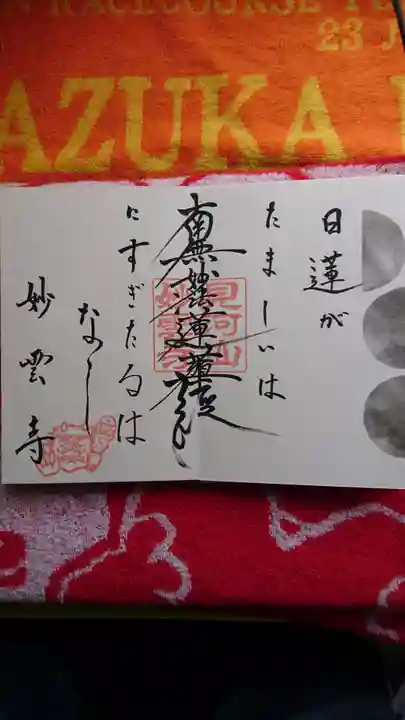 N RACECOURSE
23 J
AZUKA
日蓮が
たましひは
南無妙法蓮華経
にすぎたるは
なし
妙雲寺